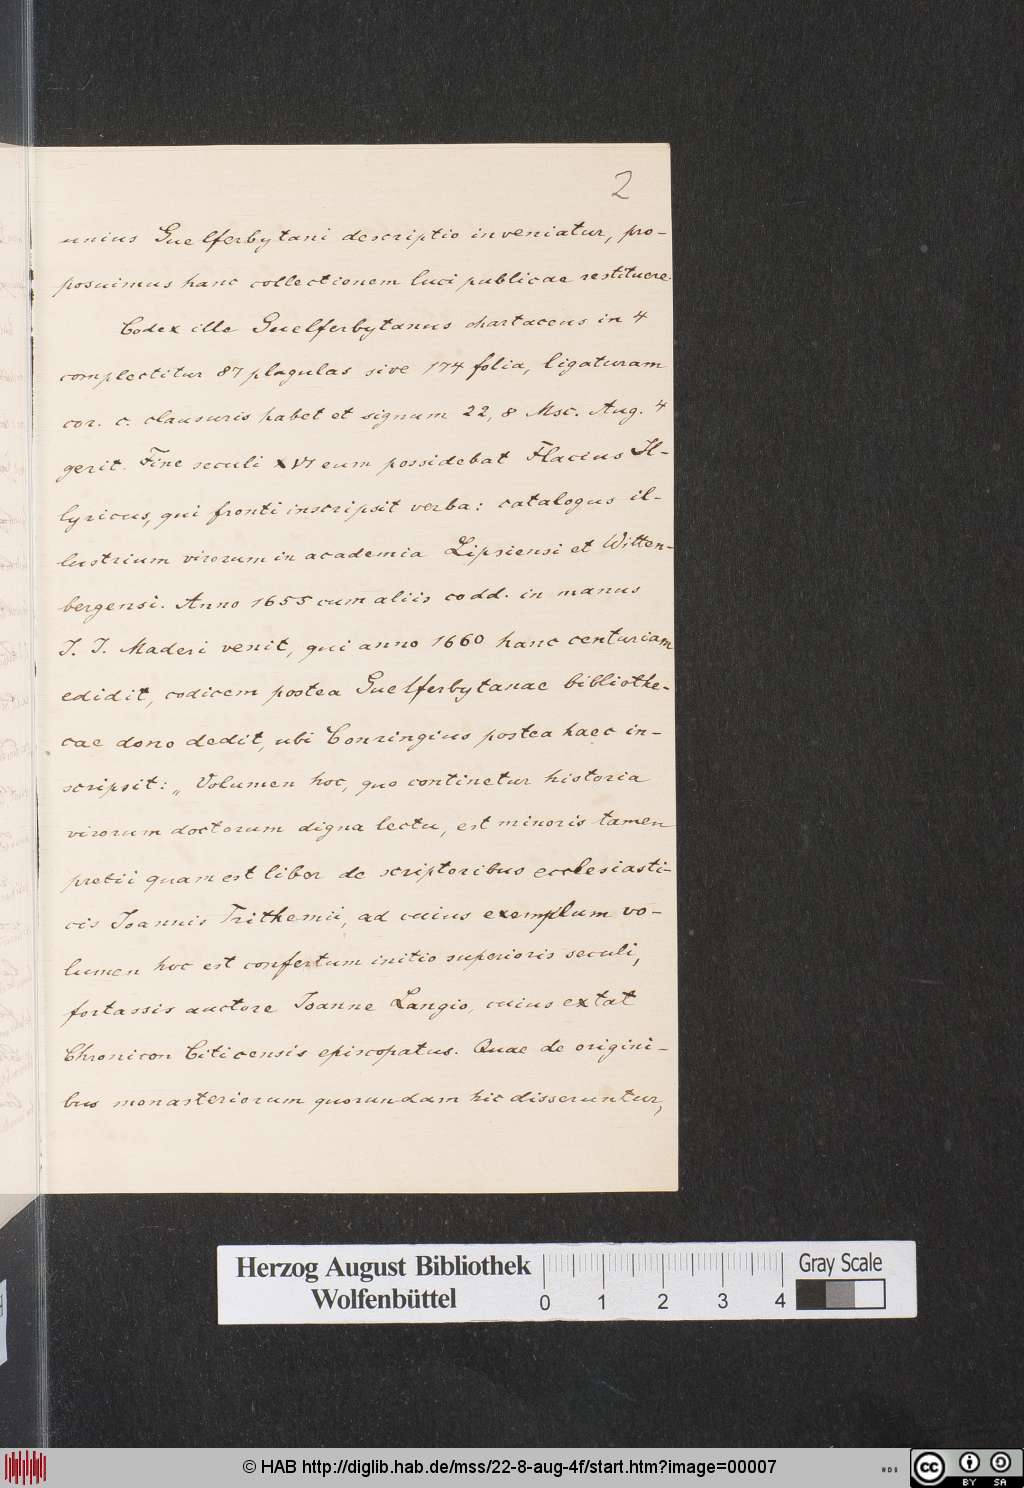 2
unius Guelferbytani descriptio inveniatur, pro-
posuimus hanc collectionem luci publicae restituere.
Codex ille Guelferbytanus chartaceus in 4
complectitur 87 plagulas sive 174 folia, ligaturam
cor. c. clausuris habet et signum 22, 8 Msc. Aug. 4
gerit. Fine seculi XVI eum possidebat Flacius Il-
lyricus, qui fronti inscripsit verba: catalogus il-
lustrium virorum in academia Lipsiensi et Witten-
bergensi. Anno 1655 cum aliis codd. in manus
J. J. Maderi venit, qui anno 1660 hanc centuriam
edidit, codicem postea Guelferbytanae bibliothe-
cae dono dedit, ubi Conringius postea haec in-
scripsit: „Volumen hoc, quo continetur historia
virorum doctorum digna lectu, est minoris tamen
pretii quam est liber de scriptoribus ecclesiasti-
cis Joannis Trithemii, ad cuius exemplum vo-
lumen hoc est confertum initio superioris seculi,
fortassis auctore Joanne Langio, cuius extat
Chronicon Citicensis episcopatus. Quae de origini-
bus monasteriorum quorundam hic disseruntur,
Herzog August Bibliothek
Wolfenbüttel
0 1 2 3 4
Gray Scale
© HAB http://diglib.hab.de/mss/22-8-aug-4f/start.htm?image=00007
cc BY SA